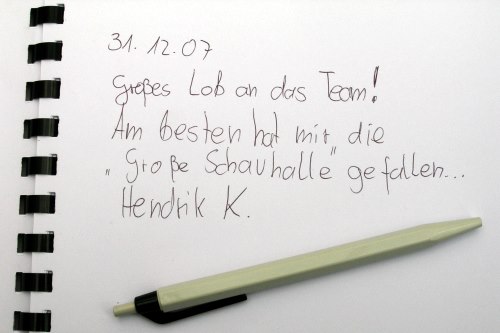 31. 12.07
Großes Lob an das Team!
Am besten hat mir die
„Große Schauhalle" gefallen...
Hendrik K.